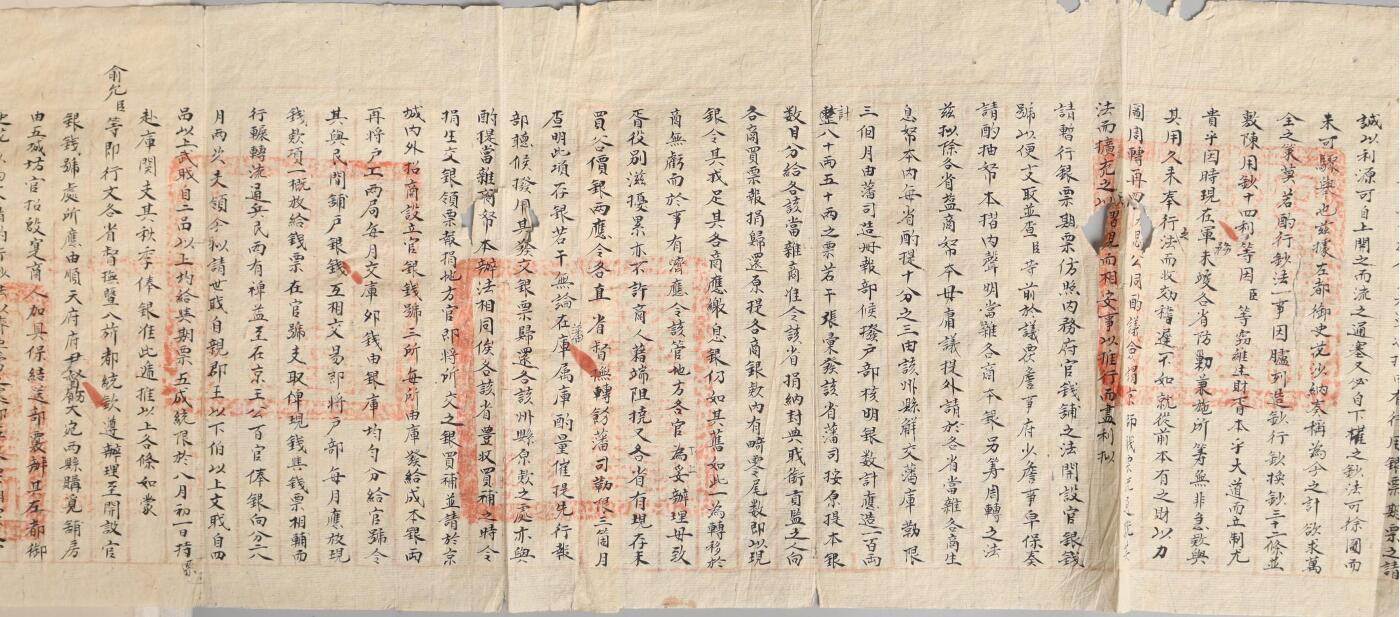 誠以利源可自上開之而流之通塞又必自下權之鈔法可徐圖而
未可驟興也茲據左都御史花沙納奏稱為今之計欲求萬
全之策莫若酌行鈔法一事因臚列造鈔行鈔換鈔三十二條並
敷陳用鈔十四利等因臣等竊維生財百本乎大道而立制尤
貴乎因時現在軍務未竣各省防勦兼施所籌無非急款與
其用久未奉行之法而收効稽遲不如就從前本有之財以力
圖周轉再四思公同酌
法而擴充之以習見而相安事以推行而盡利擬
請暫行銀票期票仿照內務府官錢鋪之法開設官銀錢
號以便支取並查臣等前於議覆詹事府少詹事阜保奏
請酌抽帑本摺內聲明當雜各商本銀另籌周轉之法
茲擬除各省鹽商帑本毋庸議提外請於各省當雜各商生
息帑本內每省酌提十分之三由該州縣解交藩庫勒限
三個月由藩司造冊報部候撥戶部核明銀數計應造一百兩
八十兩五十兩之票若干張彙發該省藩司按原提本銀
數目分給各該當雜商准令該省捐納封典職銜貢監之人向
各商買票報捐歸還原提各商銀款內有畸零尾數即以現
銀令其找足其各商應繳息銀仍如其舊如此一為轉移於
商無虧而於事有濟應令該管地方各官為妥辦理毋致
胥役別滋擾累亦不許商人藉端阻撓又各省有現存未
買谷價銀兩應令各直省督撫轉飭藩司勒限三個月
查明此項存銀若干無論在藩庫屬庫酌量催提先行報
部聽候撥用其發交銀票歸還合該州縣原款之處亦與
酌提當雜商帑本辦法相同俟各該省豐收買補之時令
捐生交銀領票報捐地方官即將所交之銀買補並請於京
城內外招商設立官銀錢號三所每所由庫發給成本銀兩
再將戶工兩局每月交庫卯錢由銀庫均勻分給官號令
其與民間鋪戶銀錢互相交易即將戶部每月應放現
錢款項一概放給錢票在官號支取俾現錢與錢票相輔而
行輾轉流通兵民兩有裨益至在京王公百官俸銀向分二八
月兩次支領今擬請世職自親郡王以下伯以上文職自四
品以上武職自二品以上均給與期票五成統限於八月初一日持票
赴庫關支其秋季俸銀准此遞推以上各條如蒙
俞允臣等即行文各省督撫暨八旂都統欽遵辦理至開設官
銀錢號處所應由順天府府尹督飭大宛兩縣購覓鋪房
由五城坊官招殷實商人加具保結送部覈辦其左都御